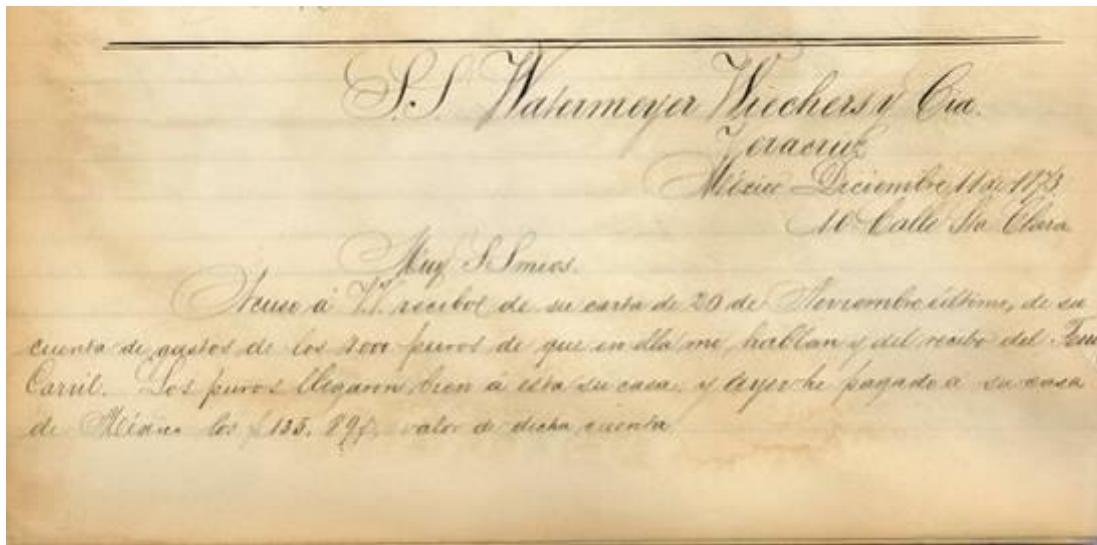 S.S. Watermeyer Wiechers y Cia.
Veracruz
México Diciembre 11 de 1873
10 Calle Sta Clara
Muy S. S. mios.
Acuso á V.V. recibo de su carta de 20 de Noviembre último, de su
cuenta de gastos de los puros de que en ella me hablan y del recibo del
Carril. Los puros llegaron bien á esta su casa, y ayer he pagado á su casa
de México los $135.89 valor de dicha cuenta